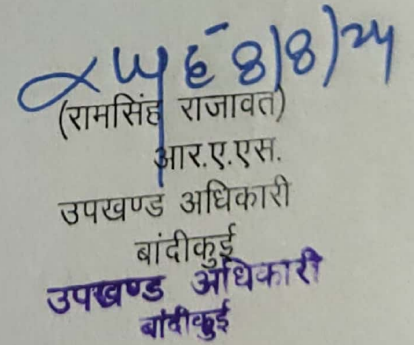 8/8/24
(रामसिंह राजावत)
आर.ए.एस.
उपखण्ड अधिकारी
बांदीकुई
उपखण्ड अधिकारी
बांदीकुई